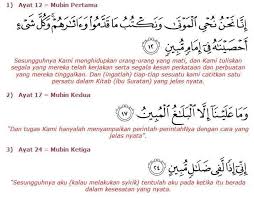 1) Ayat 12 – Mubin Pertama
إِنَّا نَحْنُ نُحْيِ الْمَوْتَىٰ وَنَكْتُبُ مَا قَدَّمُوا وَءَاثَارَهُمْ وَكُلَّ شَيْءٍ
أَحْصَيْنَاهُ فِي إِمَامٍ مُّبِينٍ ١٢
Sesungguhnya Kami menghidupkan orang-orang yang mati, dan Kami tuliskan
segala yang mereka telah kerjakan serta segala kesan perkataan dan perbuatan
yang mereka tinggalkan. Dan (ingatlah) tiap-tiap sesuatu kami catitkan satu
persatu dalam Kitab (ibu Suratan) yang jelas nyata.
2) Ayat 17 – Mubin Kedua
وَمَا عَلَيْنَا إِلَّا الْبَلَاغُ الْمُبِينُ ١٧
"Dan tugas Kami hanyalah menyampaikan perintah-perintahNya dengan cara yang
jelas nyata".
3) Ayat 24 – Mubin Ketiga
إِنِّي إِذًا لَّفِي ضَلَالٍ مُّبِينٍ ٢٤
"Sesungguhnya aku (kalau melakukan syirik) tentulah aku pada ketika itu berada
dalam kesesatan yang nyata.